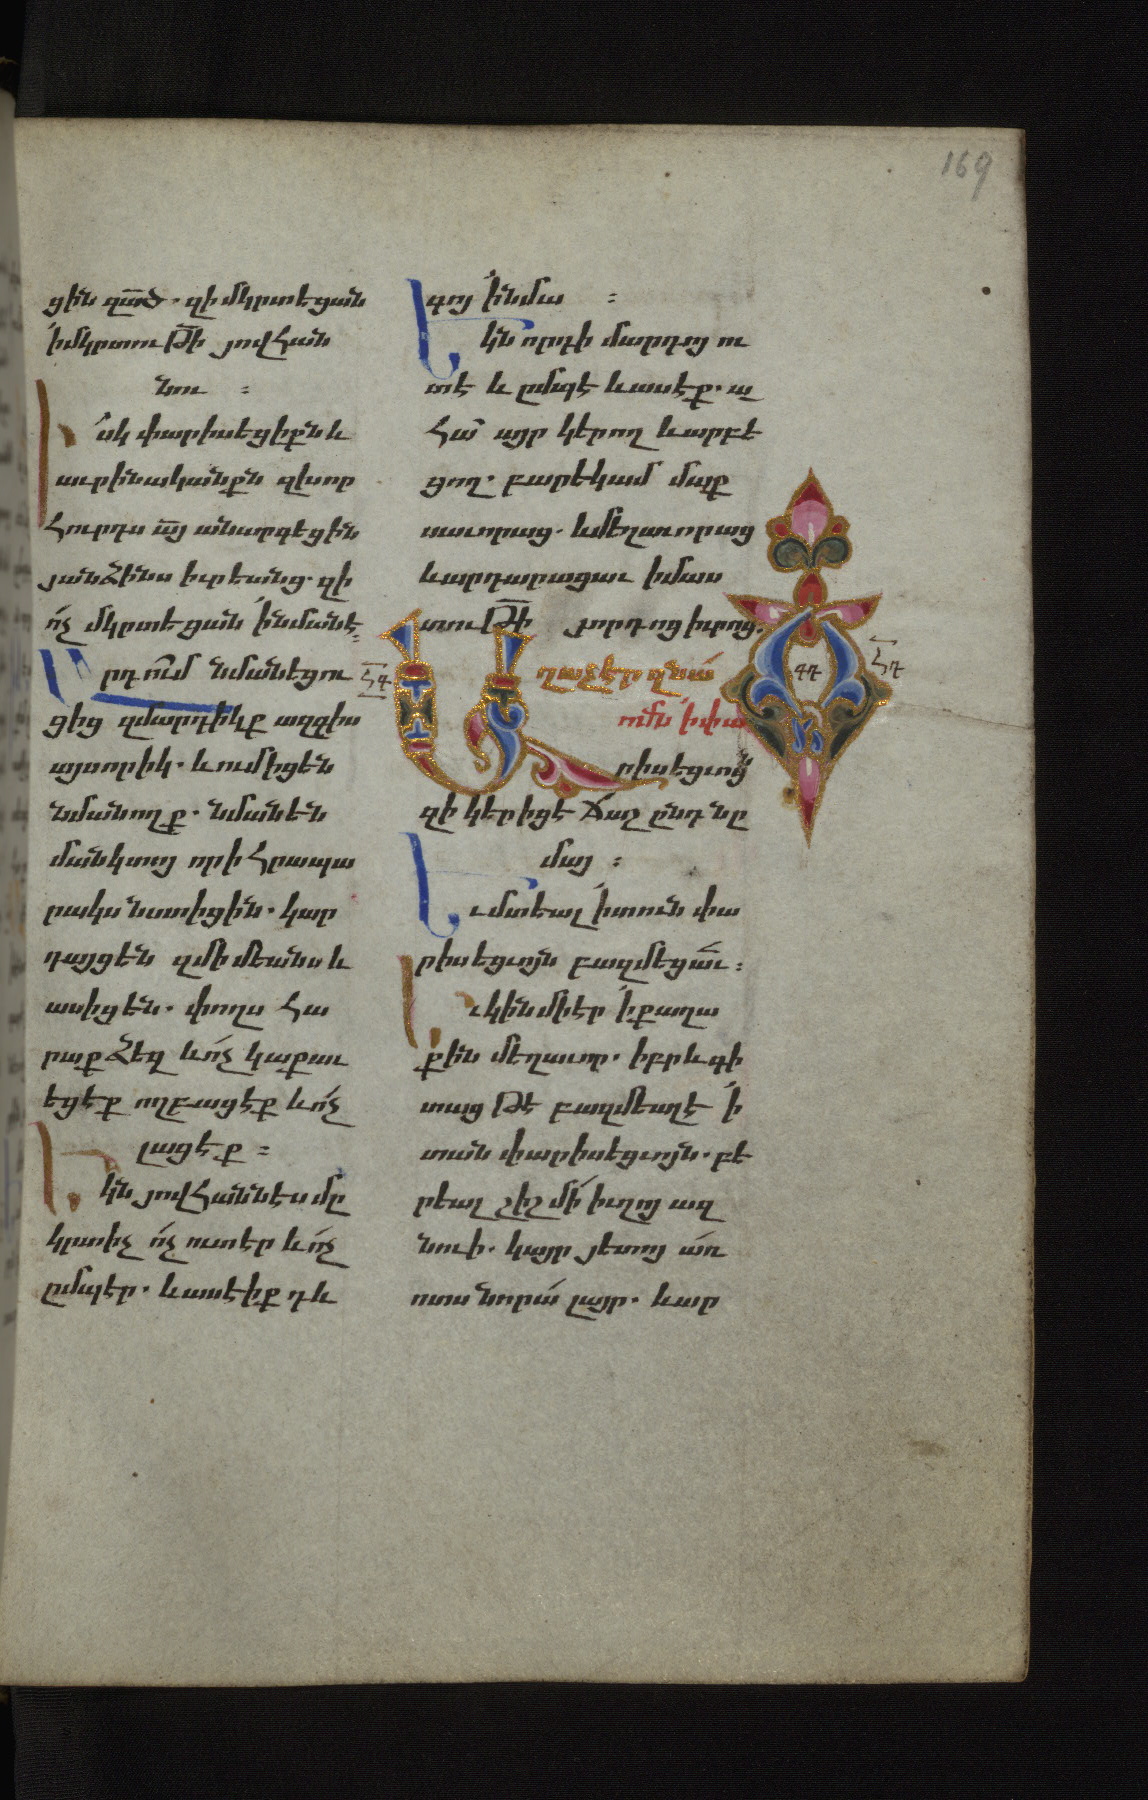 169
ցին զա̅ծ. զի մկրտեցան
՛ի մկրտու թի̅ յովհան
նու :
Իսկ փարիսեցիքն և
աւրինականքն զխոր
հուրդս ա̅յ անարգեցին
յանձինս իւրեանց. զի
ո՛չ մկրտեցան ՛ի նմանէ :
Արդ ո՛ւմ նմանեցու
ցից զմարդիկք ազգիս
այսորիկ. և ում իցեն
նմանողք. նմանեն
մանկտոյ որ ի հրապա
րակս նստիցին. կար
դայցեն զմիմեանս և
ասիցեն. փողս հա
րաք ձեզ և ո՛չ կաքաւ
եցէք ողբացէք և ո՛չ
լացէք :
Եկն յովհաննէս մը
կրտիչ ո՛չ ուտէր և ո՛չ
ըմպէր. և ասէիք դև
գոյ ՛ի նմա :
Եկն որդի մարդոյ ու
տէ և ըմպէ և ասէք. ա
հա՛ այր կերող և արբե
ցող. բարեկամ մաք
սաւորաց. և մեղաւորաց
և արդարացաւ իմաս
տու թի̅ յորդոց իւրոց.
Աղաչէր զնա՛
ոմն ՛ի փա
րիսեցւոց՛ն
զի կերիցէ ճաշ ընդ նը
մայ :
Եւ մտեալ ՛ի տուն փա
րիսեցւոյն բազմեցա՛ւ :
Եւ կին մի էր ՛ի քաղա
քին մեղաւոր. իբրև գի
տաց թէ բազմեալ է ՛ի
տան փարիսեցւոյն. բե
րեալ շիշ մի՛ իւղոյ ազ
նուի. կայր յետոյ ա՛ռ
ոտս նորա՛ լայր. և ար
ՀԴ
ՀԴ